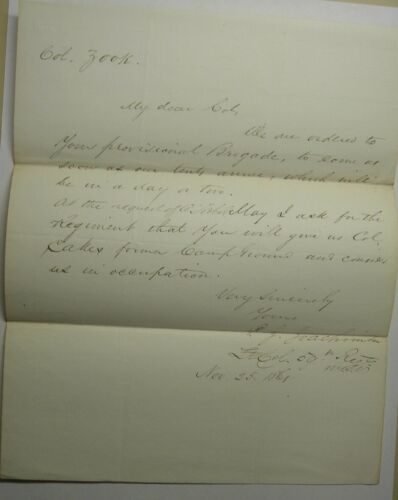 Col. Zook.
My dear Col,
We are ordered to
Your provisional Brigade, to come as
soon as our tents arrive, which will
be in a day or two.
At the request of May I ask for the
Regiment that You will give us Col.
Cakes former Camp Ground and consider
us in occupation.
Very Sincerely
Yours
Lt Col. 57th Regt
Nov. 25. 1861